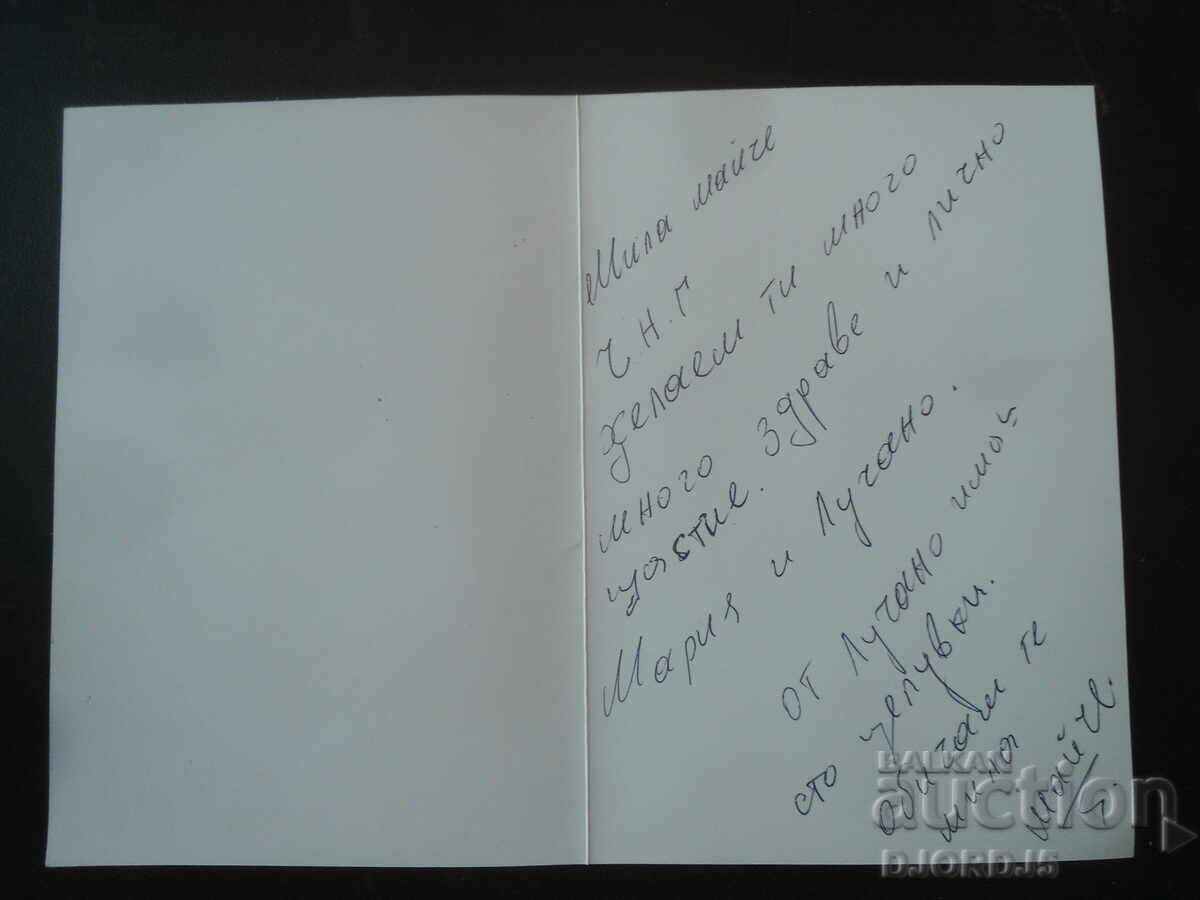 Мила майче
Ч.Н.Г
желаем ти много
много здраве и лично
щастие.
Мария и Лучано.
от Лучано имаш
сто целувки.
обичам те
мила
майче.
BALKAN
auction
DJORDJ5